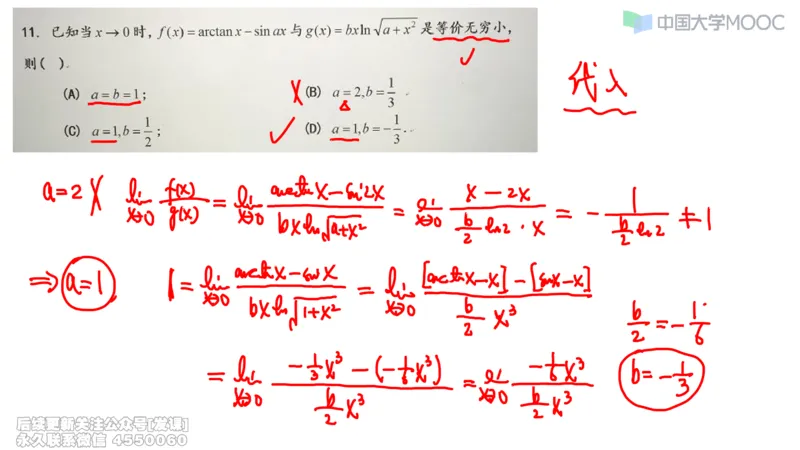 中国大学MOOC
11. 已知当 x → 0 时, f(x) = arctan x − sin ax 与 g(x) = bx ln √(a + x²) 是等价无穷小,
则( ).
(A) a = b = 1;
X (B) a = 2, b = 1/3 .
(C) a = 1, b = 1/2 ;
✓ (D) a = 1, b = −1/3 .
代入
a=2 X lim x→0 f(x)/g(x) = lim x→0 (arctan x − sin 2x)/(bx ln √(a+x²)) = lim x→0 (x − 2x)/(b/2 ln2 · x) = − 1/(b/2 ln2) ≠ 1
⇒ a=1 1 = lim x→0 (arctan x − sin x)/(bx ln √(1+x²)) = lim x→0 ([arctan x − x] − [sin x − x])/(b/2 x³)
b/2 = −1/6
= lim x→0 (−1/3 x³ − (−1/6 x³))/(b/2 x³) = lim x→0 (−1/6 x³)/(b/2 x³)
b = −1/3
后续更新关注公众号[发课]
永久联系微信 4550060